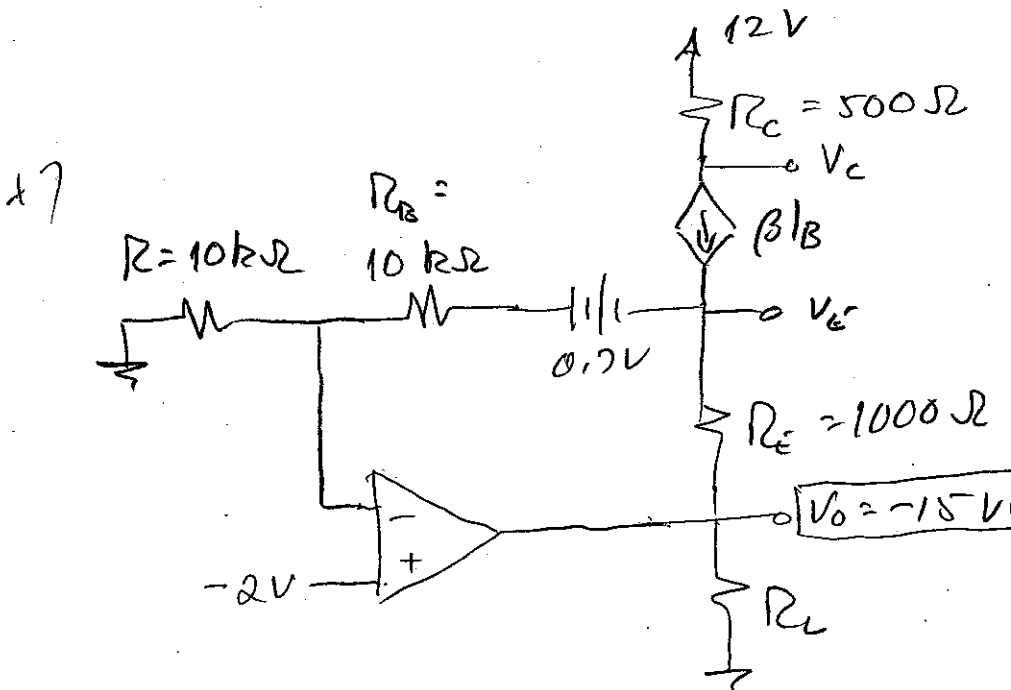 12 V
R_C = 500 Ω
V_C
R_B =
10 kΩ
R = 10 kΩ
βI_B
V_E
0.7V
R_E = 1000 Ω
-
V_0 = -15 V
+
-2V
R_L